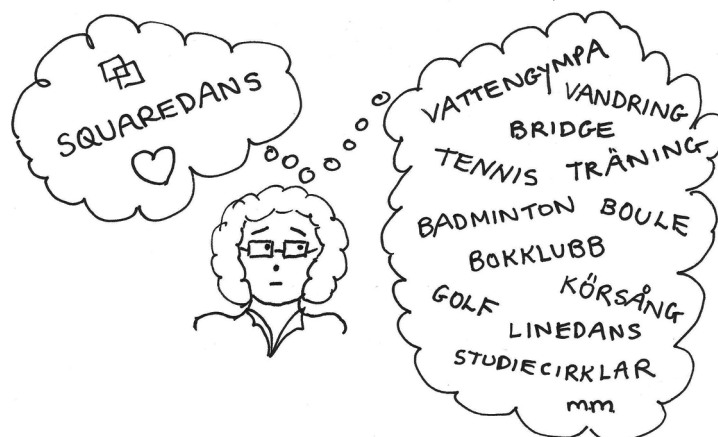 SQUAREDANS
VATTENGYMPA
VANDRING
BRIDGE
TENNIS TRÄNING
BADMINTON BOULE
BOKKLUBB
GOLF KÖRSÅNG
LINEDANS
STUDIECIRKLAR
mm